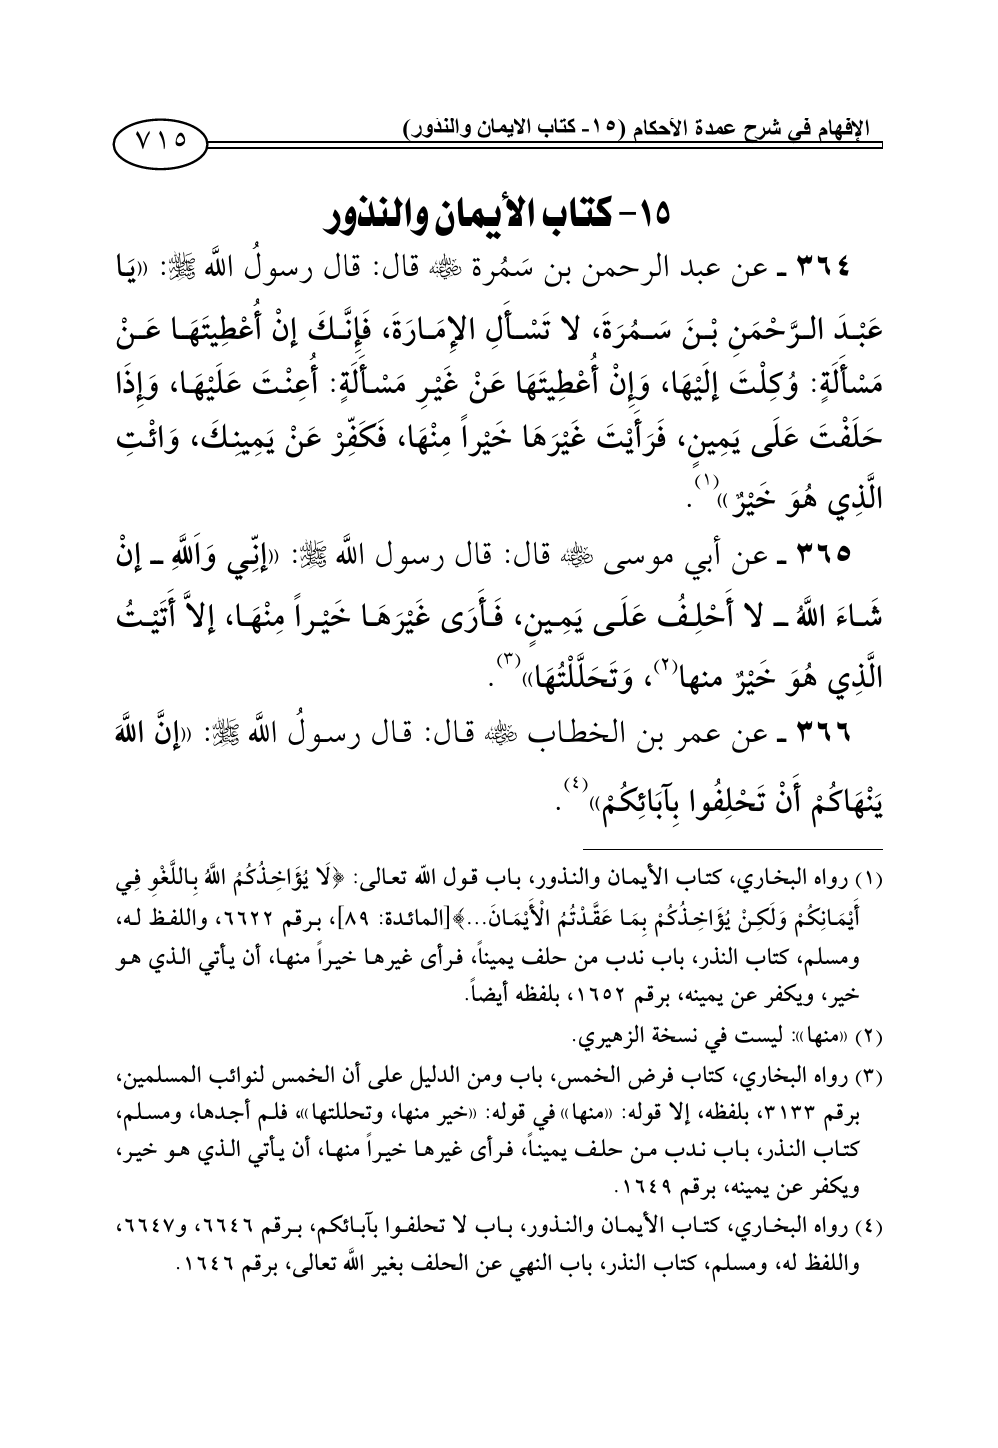 الإفهام في شرح عمدة الأحكام (١٥- كتاب الايمان والنذور)
٧١٥
١٥- كتاب الأيمان والنذور
٣٦٤ ـ عن عبد الرحمن بن سَمُرة ﷺ قال: قال رسولُ اللَّه ﷺ: «يَا
عَبْدَ الرَّحْمَنِ بْنَ سَمُرَةَ، لا تَسْأَلِ الإِمَارَةَ، فَإِنَّكَ إنْ أُعْطِيتَهَا عَنْ
مَسْأَلَةٍ: وُكِلْتَ إلَيْهَا، وَإِنْ أُعْطِيتَهَا عَنْ غَيْرِ مَسْأَلَةٍ: أُعِنْتَ عَلَيْهَا، وَإِذَا
حَلَفْتَ عَلَى يَمِينٍ، فَرَأَيْتَ غَيْرَهَا خَيْراً مِنْهَا، فَكَفِّرْ عَنْ يَمِينِكَ، وَائْتِ
الَّذِي هُوَ خَيْرٌ»(١).
٣٦٥ ـ عن أبي موسى رضي الله عنه قال: قال رسول اللَّه ﷺ: «إنِّي وَاَللَّهِ ـ إنْ
شَاءَ اللَّهُ ـ لا أَحْلِفُ عَلَى يَمِينٍ، فَأَرَى غَيْرَهَا خَيْراً مِنْهَا، إلاَّ أَتَيْتُ
الَّذِي هُوَ خَيْرٌ منها(٢)، وَتَحَلَّلْتُهَا»(٣).
٣٦٦ ـ عن عمر بن الخطاب رضي الله عنه قال: قال رسولُ اللَّه ﷺ: «إنَّ اللَّهَ
يَنْهَاكُمْ أَنْ تَحْلِفُوا بِآبَائِكُمْ»(٤).
(١) رواه البخاري، كتاب الأيمان والنذور، باب قول الله تعالى: ﴿لَا يُؤَاخِذُكُمُ اللَّهُ بِاللَّغْوِ فِي
أَيْمَانِكُمْ وَلَكِنْ يُؤَاخِذُكُمْ بِمَا عَقَّدْتُمُ الْأَيْمَانَ...﴾[المائدة: ٨٩]، برقم ٦٦٢٢، واللفظ له،
ومسلم، كتاب النذر، باب ندب من حلف يميناً، فرأى غيرها خيراً منها، أن يأتي الذي هو
خير، ويكفر عن يمينه، برقم ١٦٥٢، بلفظه أيضاً.
(٢) «منها»: ليست في نسخة الزهيري.
(٣) رواه البخاري، كتاب فرض الخمس، باب ومن الدليل على أن الخمس لنوائب المسلمين،
برقم ٣١٣٣، بلفظه، إلا قوله: «منها» في قوله: «خير منها، وتحللتها»، فلم أجدها، ومسلم،
كتاب النذر، باب ندب من حلف يميناً، فرأى غيرها خيراً منها، أن يأتي الذي هو خير،
ويكفر عن يمينه، برقم ١٦٤٩.
(٤) رواه البخاري، كتاب الأيمان والنذور، باب لا تحلفوا بآبائكم، برقم ٦٦٤٦، و٦٦٤٧،
واللفظ له، ومسلم، كتاب النذر، باب النهي عن الحلف بغير اللَّه تعالى، برقم ١٦٤٦.